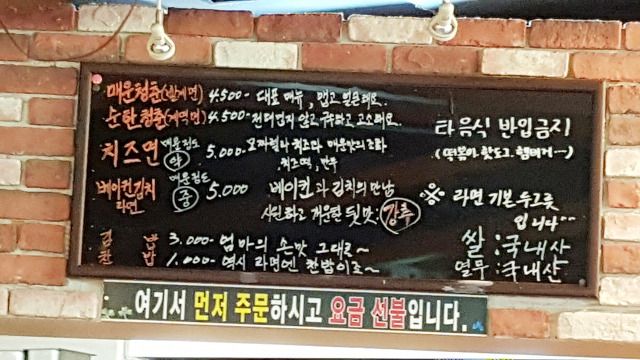 매운청춘(빨계면) 4.500- 대표메뉴, 맵고 얼큰해요.
순한청춘(계떡면) 4.500- 전혀맵지 않고 구수하고 고소해요.
치즈면 매운정도 약 5.000- 모짜렐라 치즈와 매운맛의 조화
치즈떡, 만두
베이컨김치라면 매운정도 중 5.000 베이컨과 김치의 만남
시원하고 개운한 뒷맛. 강추
김 밥 3.000- 엄마의 손맛 그대로~
찬 밥 1.000- 역시 라면엔 찬밥이죠~
타음식 반입금지
(떡볶이. 핫도그. 햄버거...)
※ 라면 기본두그릇
입니다^^
쌀 : 국내산
열무 : 국내산
여기서 먼저 주문하시고 요금 선불입니다.